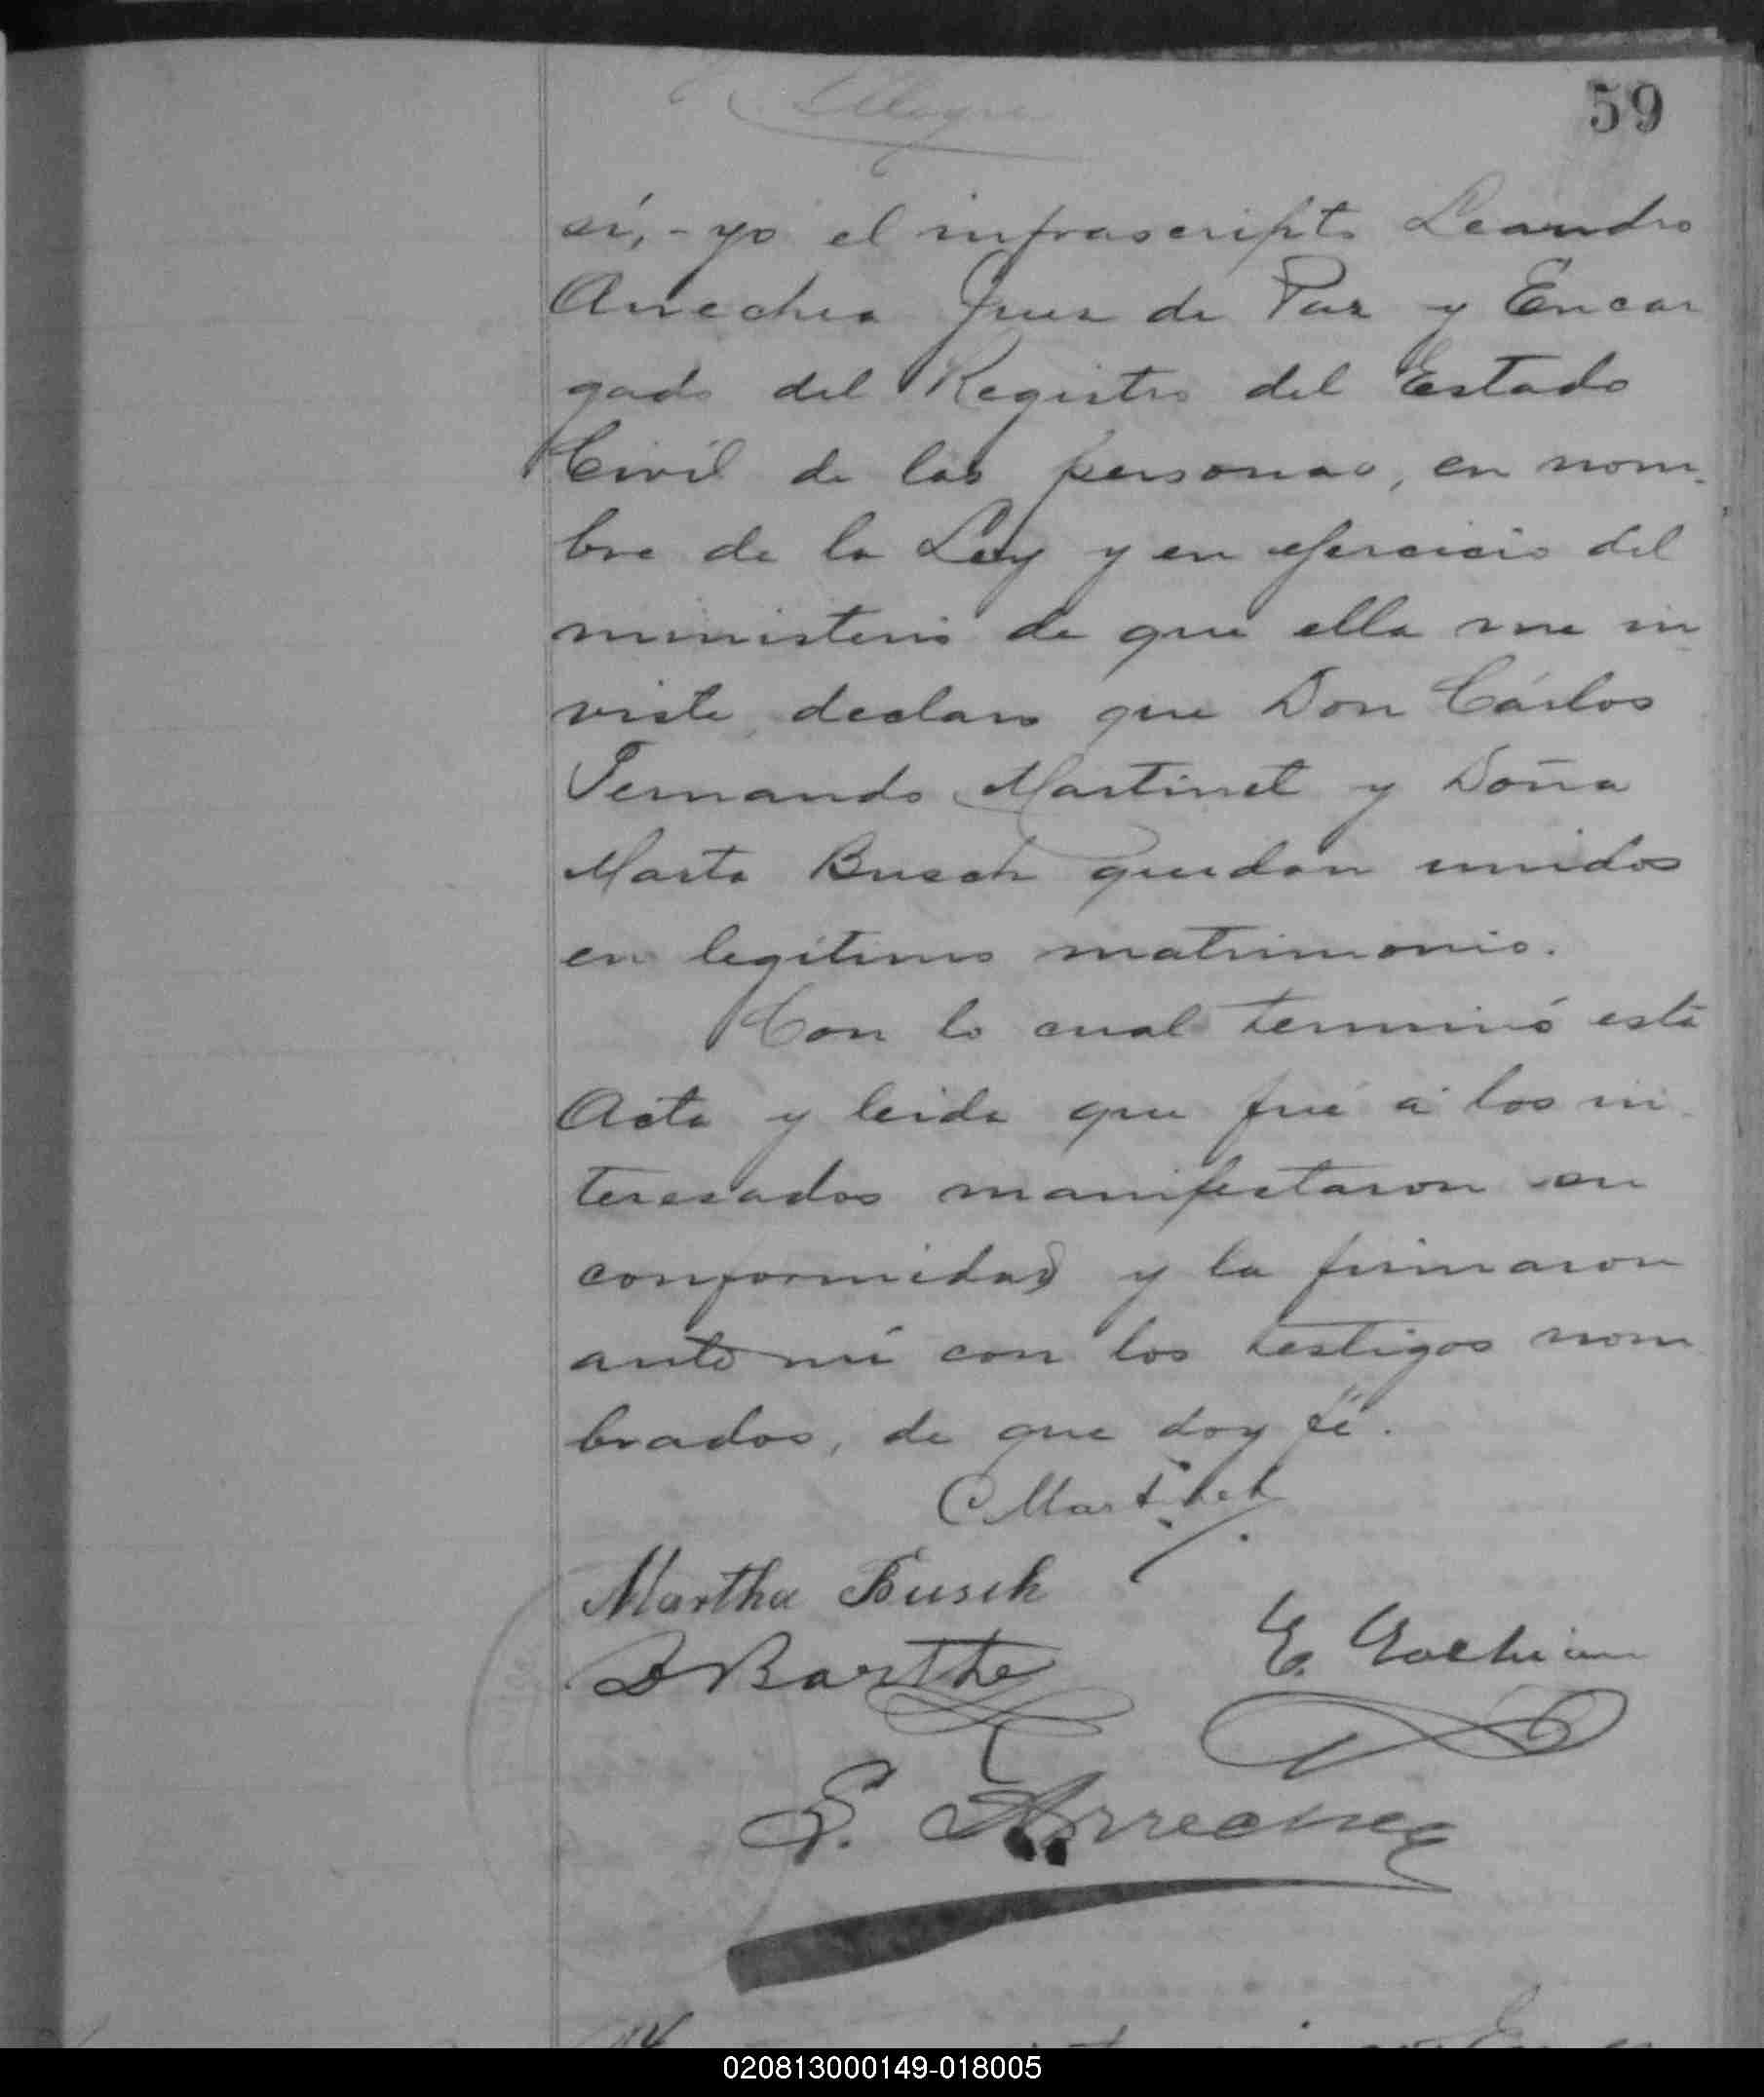 Alegre
59
sí, - yo el infrascripto Leandro
Arrechea Juez de Paz y Encar
gado del Registro del Estado
Civil de las personas, en nom-
bre de la Ley y en ejercicio del
ministerio de que ella me in-
viste, declaro que Don Cárlos
Fernando Martinet y Doña
Marta Busch quedan unidos
en legítimo matrimonio.
Con lo cual terminó esta
Acta y leida que fué á los in-
teresados manifestaron su
conformidad y la firmaron
ante mí con los testigos nom
brados, de que doy fé.
C Martinet
Martha Busch
D Barthe
E.
E. Arrechea
020813000149-018005